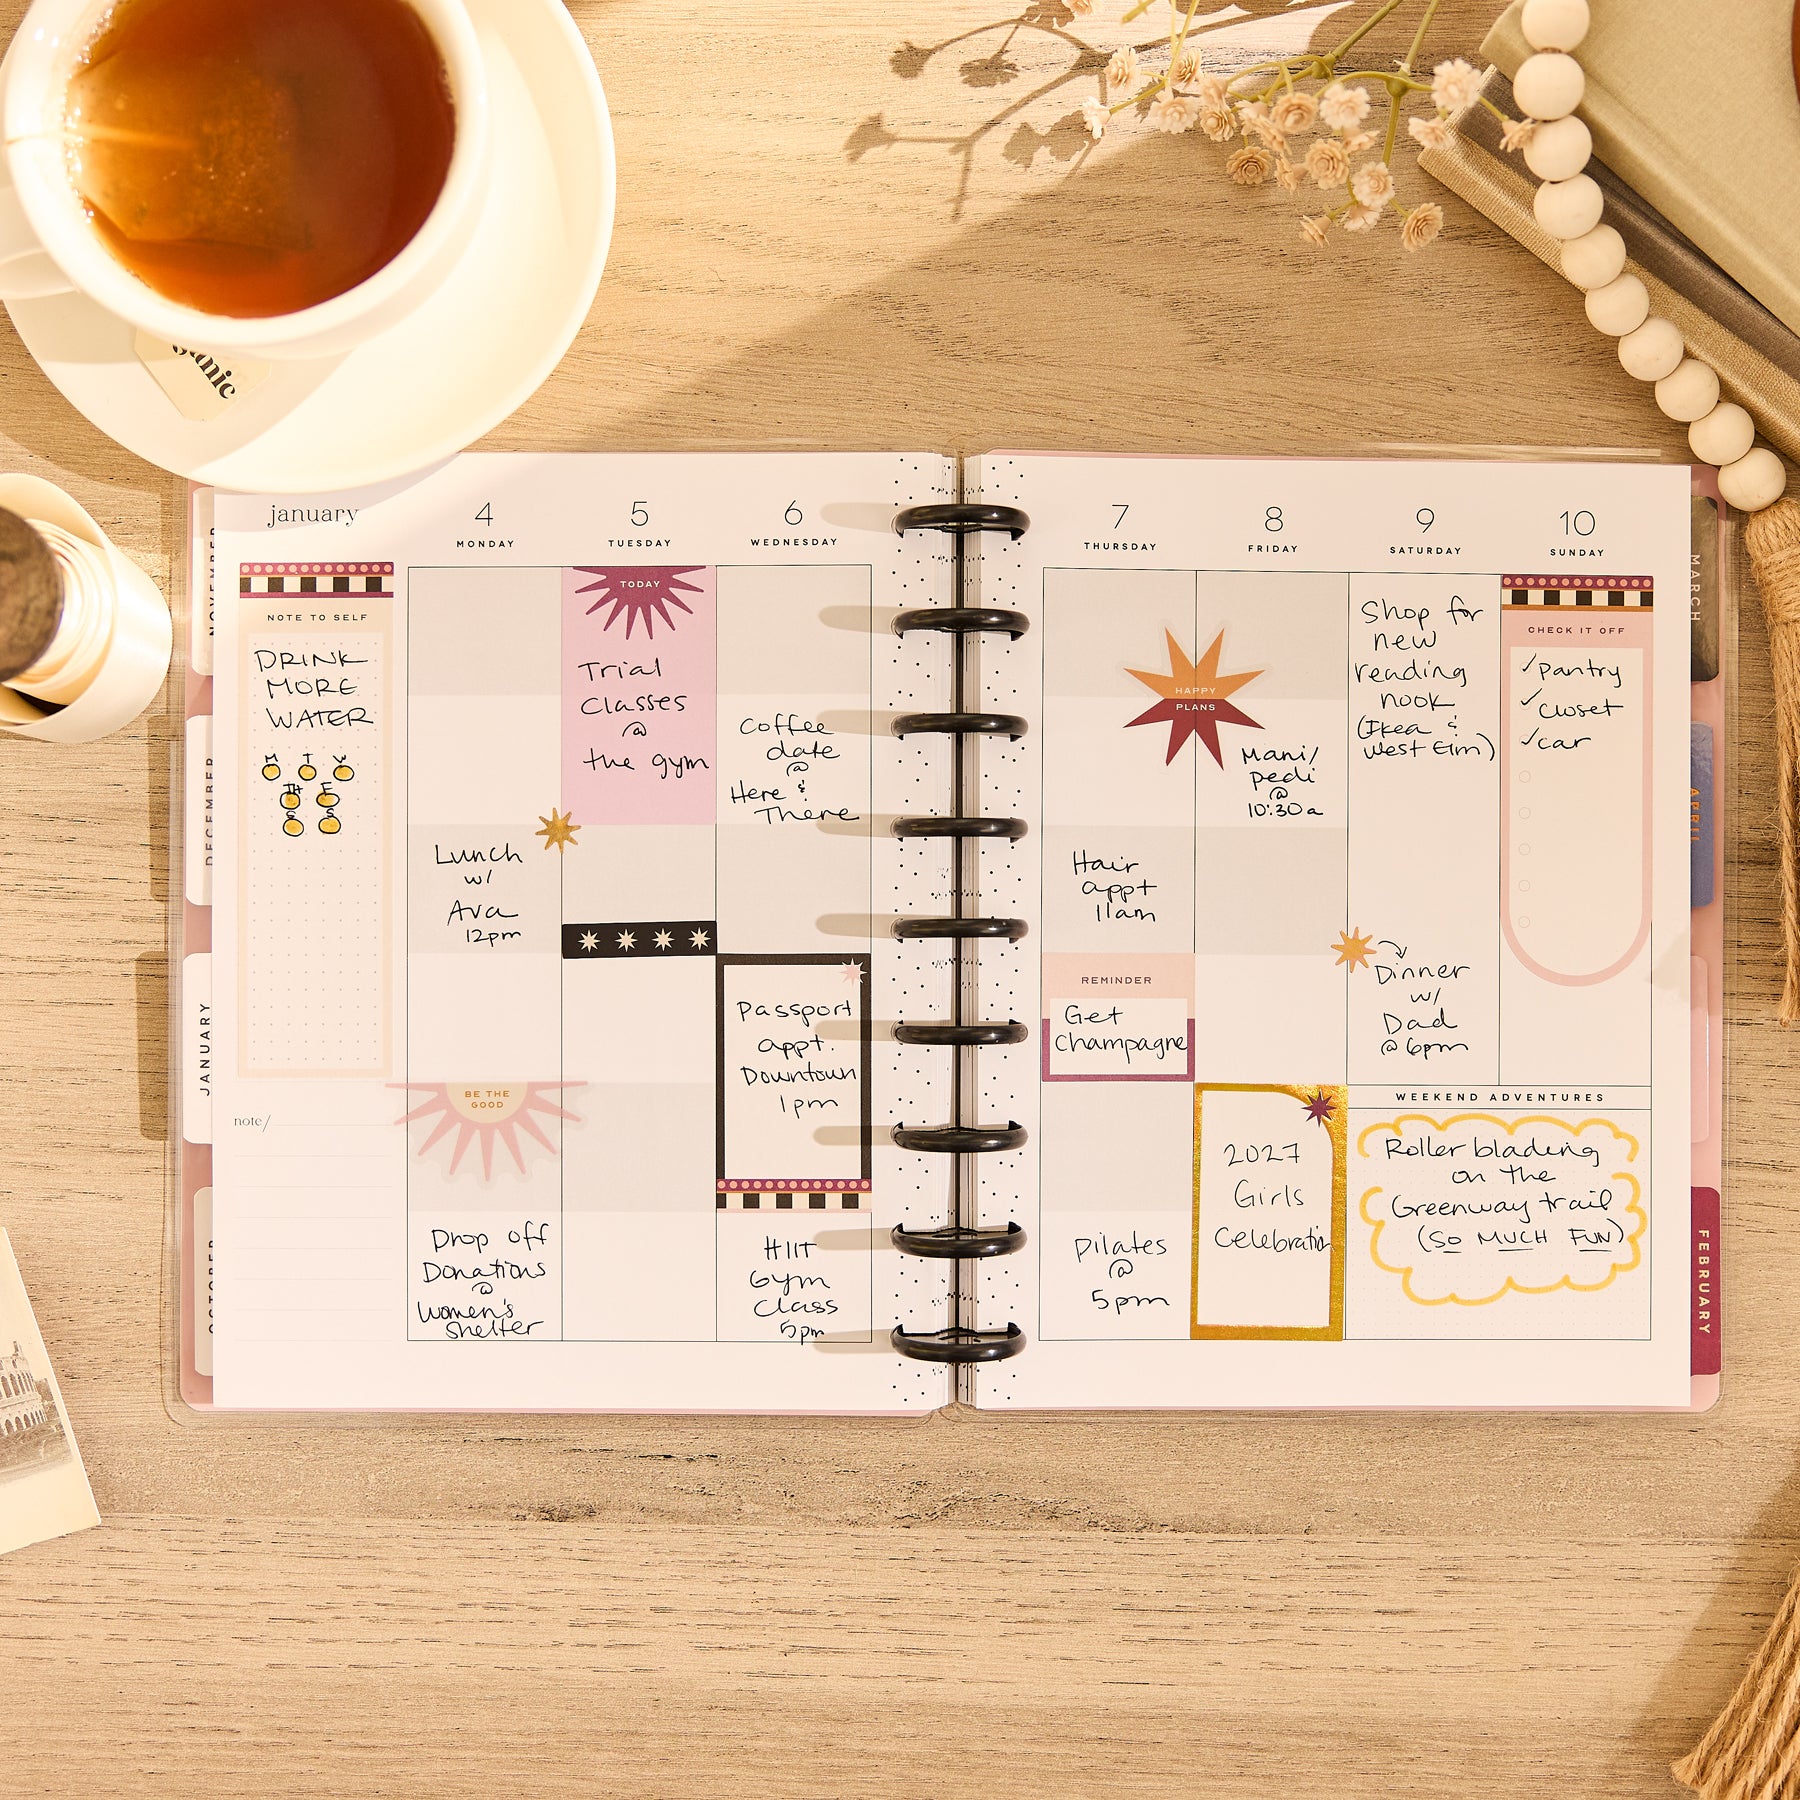 ganic
january
4
MONDAY
5
TUESDAY
6
WEDNESDAY
7
THURSDAY
8
FRIDAY
9
SATURDAY
10
SUNDAY
NOVEMBER
DECEMBER
JANUARY
OCTOBER
NOTE TO SELF
DRINK
MORE
WATER
M T W
TH F
S S
note/
Lunch
w/
Ava
12pm
BE THE
GOOD
Drop off
Donations
@
Women's
Shelter
TODAY
Trial
Classes
@
the gym
Coffee
date
@
Here &
There
Passport
appt.
Downtown
1pm
HIIT
Gym
Class
5pm
HAPPY
PLANS
Hair
appt
11am
REMINDER
Get
Champagne
Pilates
@
5pm
Mani/
pedi
@
10:30a
2027
Girls
Celebration
Shop for
new
reading
nook
(Ikea &
West Elm)
Dinner
w/
Dad
@ 6pm
CHECK IT OFF
✓pantry
✓closet
✓car
WEEKEND ADVENTURES
Rollerblading
on the
Greenway trail
(SO MUCH FUN)
MARCH
APRIL
FEBRUARY